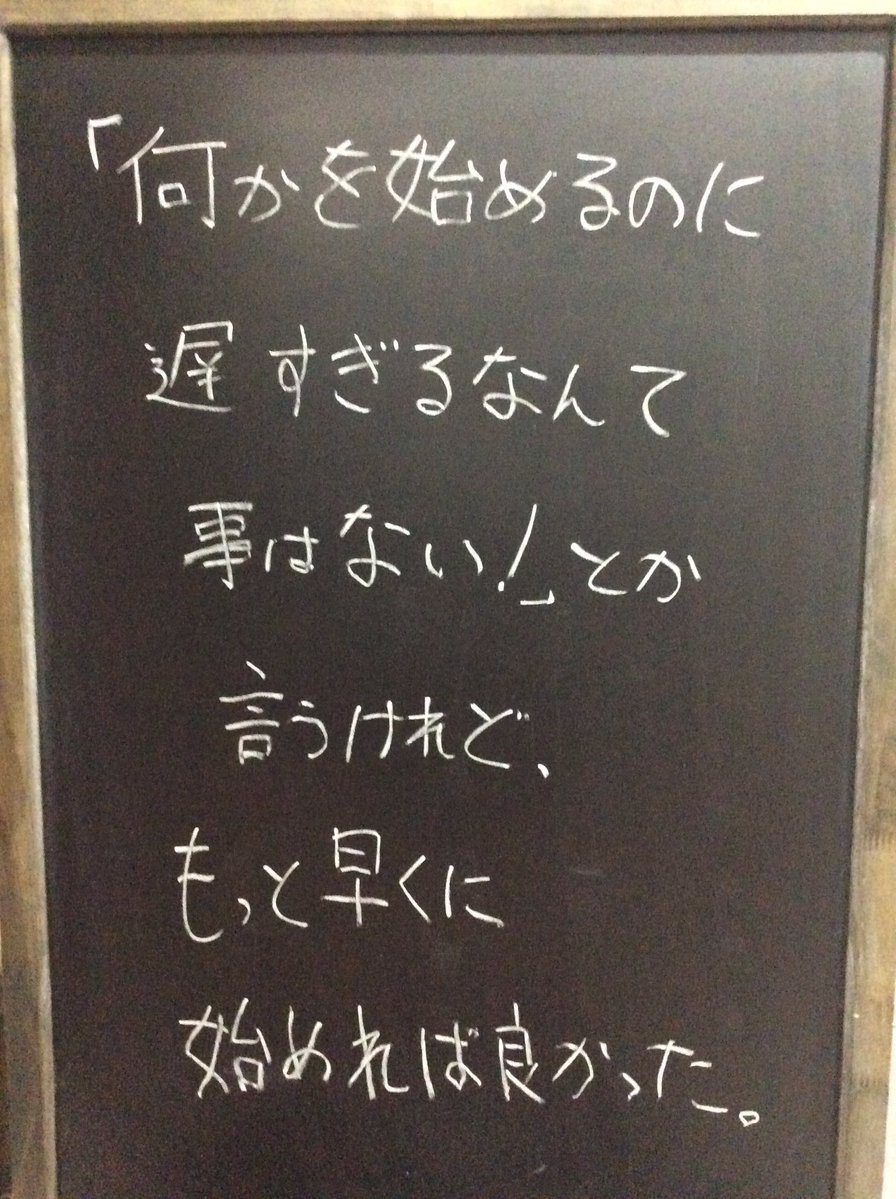 「何かを始めるのに
遅すぎるなんて
事はない!」とか
言うけれど、
もっと早くに
始めれば良かった。